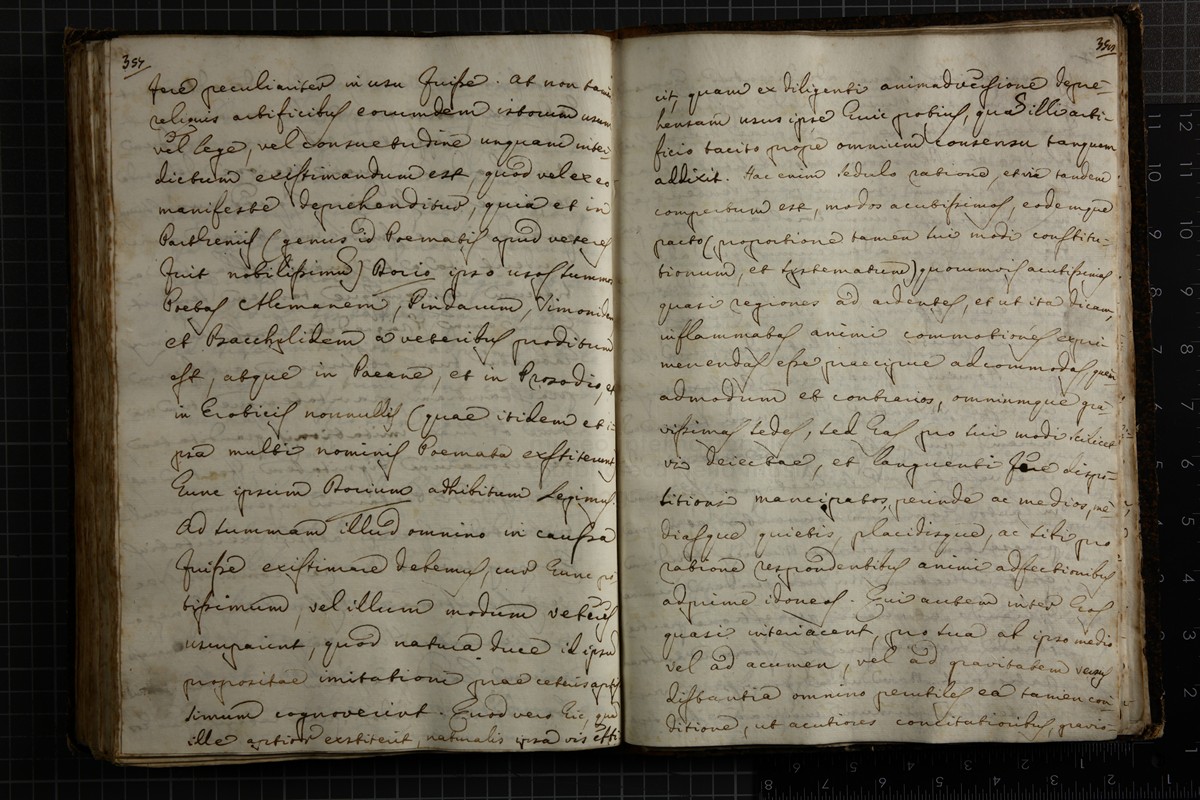 357
fere peculiariter in usu fuisse. At non tam
religuis artificibus eorumdem istorum usum
vel lege, vel consuetudine unquam inter-
dictum existimandum est, quod vel ex eo
manifestè deprehenditur, quia et in
Partheniis (genus id Poematis apud veteres
fuit nobilissimum) Dorio ipso usos summos
Poetas Alcmanem, Pindarum, Simonidem
et Bacchylidem à veteribus proditum
est, atque in Paeane, et in Prosodio, et
in Eroticis nonnullis (quae itidem et i
psa multi nominis Poemata exstiterunt
hunc ipsum Dorium adhibitum legimus.
Ad summam illud omnino in caussa
fuisse existimare debemus, cur hunc po
tissimum, vel illum modum veteres
usurparint, quod natura duce id ipsum
propositae imitationi prae ceteris aptis
simum cognoverint. Quod vero hic, quam
ille aptior exstiterit, naturalis ipsa vis effi
cit, quam ex diligenti animadversione depre-
hensam usus ipse huic potius, quam illi arti-
ficio tacito prope omnium consensu tanquam
addixit. Hac enim sedulo ratione, et via tandem
compertum est, modos acutissimos, eodemque
pacto (proportione tamen sui modi constitu-
tionum, et systematum) quorumvis acutissimas
quasi regiones ad ardentes, et ut ita dicam,
inflammatas animi commotiones expri
mendas esse praecipue adcommodas, quem
admodum et contrarios, omniumque gra
vissimas sedes, sed eas pro sui modi scilicet
vis deiectae, et languenti fere dispo-
sitioni mancipatos, perinde ac medios, me
diasque quietis, placidisque, ac sibi pro
ratione respondentibus animi adfectionibus
adprime idoneos. Qui autem inter hos
quasi interiacent, pro sua ab ipso medio
vel ad acumen, vel ad gravitatem versus
distantia omnino perutiles ea tamen con
ditione, ut acutiores concitationibus, gravio-